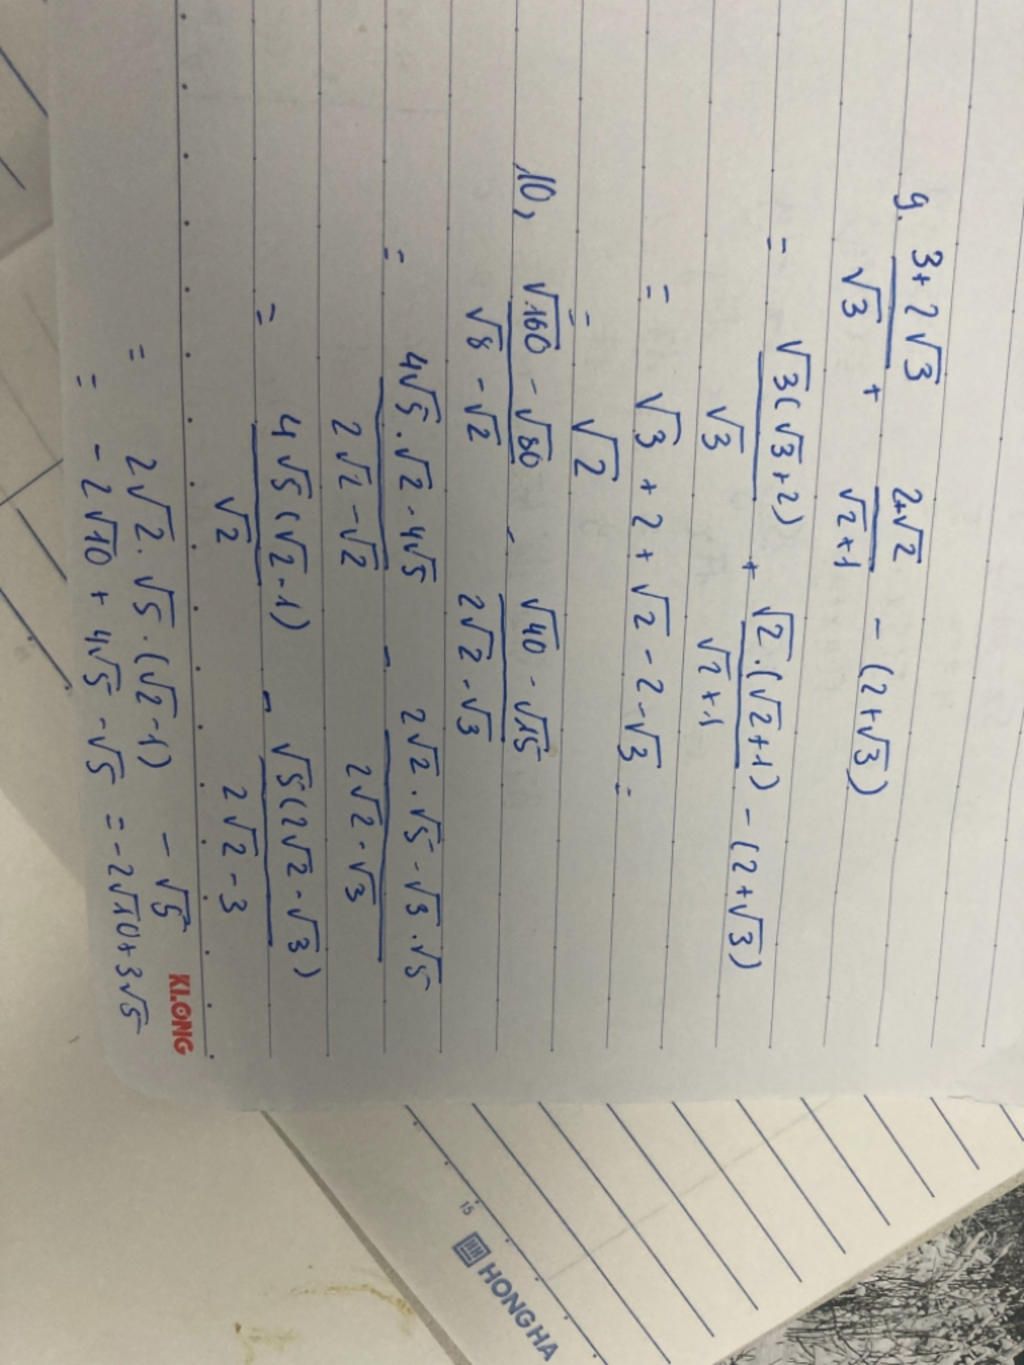 9. (3+2√3)/√3 + (2+√2)/(√2+1) - (2+√3)
= √3(√3+2)/√3 + √2.(√2+1)/(√2+1) - (2+√3)
= √3 + 2 + √2 - 2 - √3 =
= √2
10, (√160 - √80)/(√8 - √2) - (√40 - √15)/(2√2 - √3)
= (4√5.√2 - 4√5)/(2√2 - √2) - (2√2.√5 - √3.√5)/(2√2 - √3)
= 4√5(√2-1)/√2 - √5(2√2-√3)/(2√2-3)
= 2√2.√5.(√2-1) - √5
= -2√10 + 4√5 - √5 = -2√10+3√5
KLONG
15
HONG HA